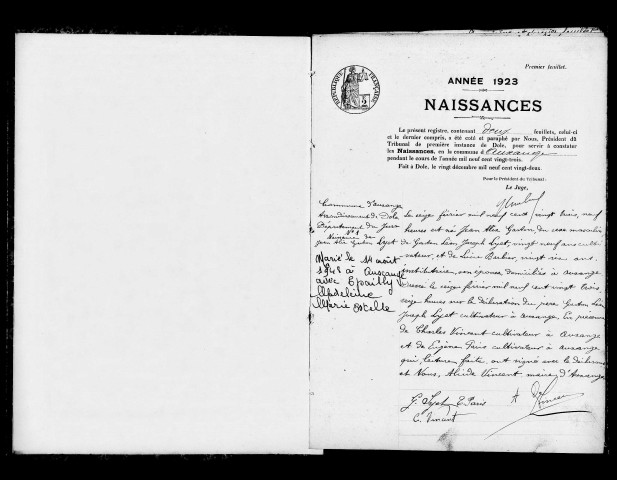 Premier feuillet.
RÉPUBLIQUE FRANÇAISE
2
ANNÉE 1923
NAISSANCES
Le présent registre, contenant deux feuillets, celui-ci
et le dernier compris, a été coté et paraphé par Nous, Président du
Tribunal de première instance de Dole, pour servir à constater
les Naissances, en la commune d'Auxange
pendant le cours de l'année mil neuf cent vingt-trois.
Fait à Dole, le vingt décembre mil neuf cent vingt-deux.
Pour le Président du Tribunal :
Le Juge,
Commune d'auxange
Arrondissement de Dole
Département du Jura
N° 1
Naissance de
Jean Gaston Lyet
Marié le 14 août
1948 à Auxange
avec Epailly
Madeleine
Marie Estelle
Le seize février mil neuf cent vingt trois, neuf
heures est né Jean Gaston, du sexe masculin
de Gaston Léon Joseph Lyet, vingt neuf ans culti
vateur, et de vingt six ans
institutrice, son épouse, domiciliés à auxange
Dressé le seize février mil neuf cent vingt trois
seize heures sur la déclaration du père Gaston Léon
Joseph Lyet cultivateur à auxange. En présence
de Charles Vincent cultivateur à auxange
et de Eugène Paris cultivateur à auxange
qui, lecture faite ont signé avec le déclarant
et Nous, Vincent maire d'Auxange
G. Lyet E Paris A Vincent
C. Vincent